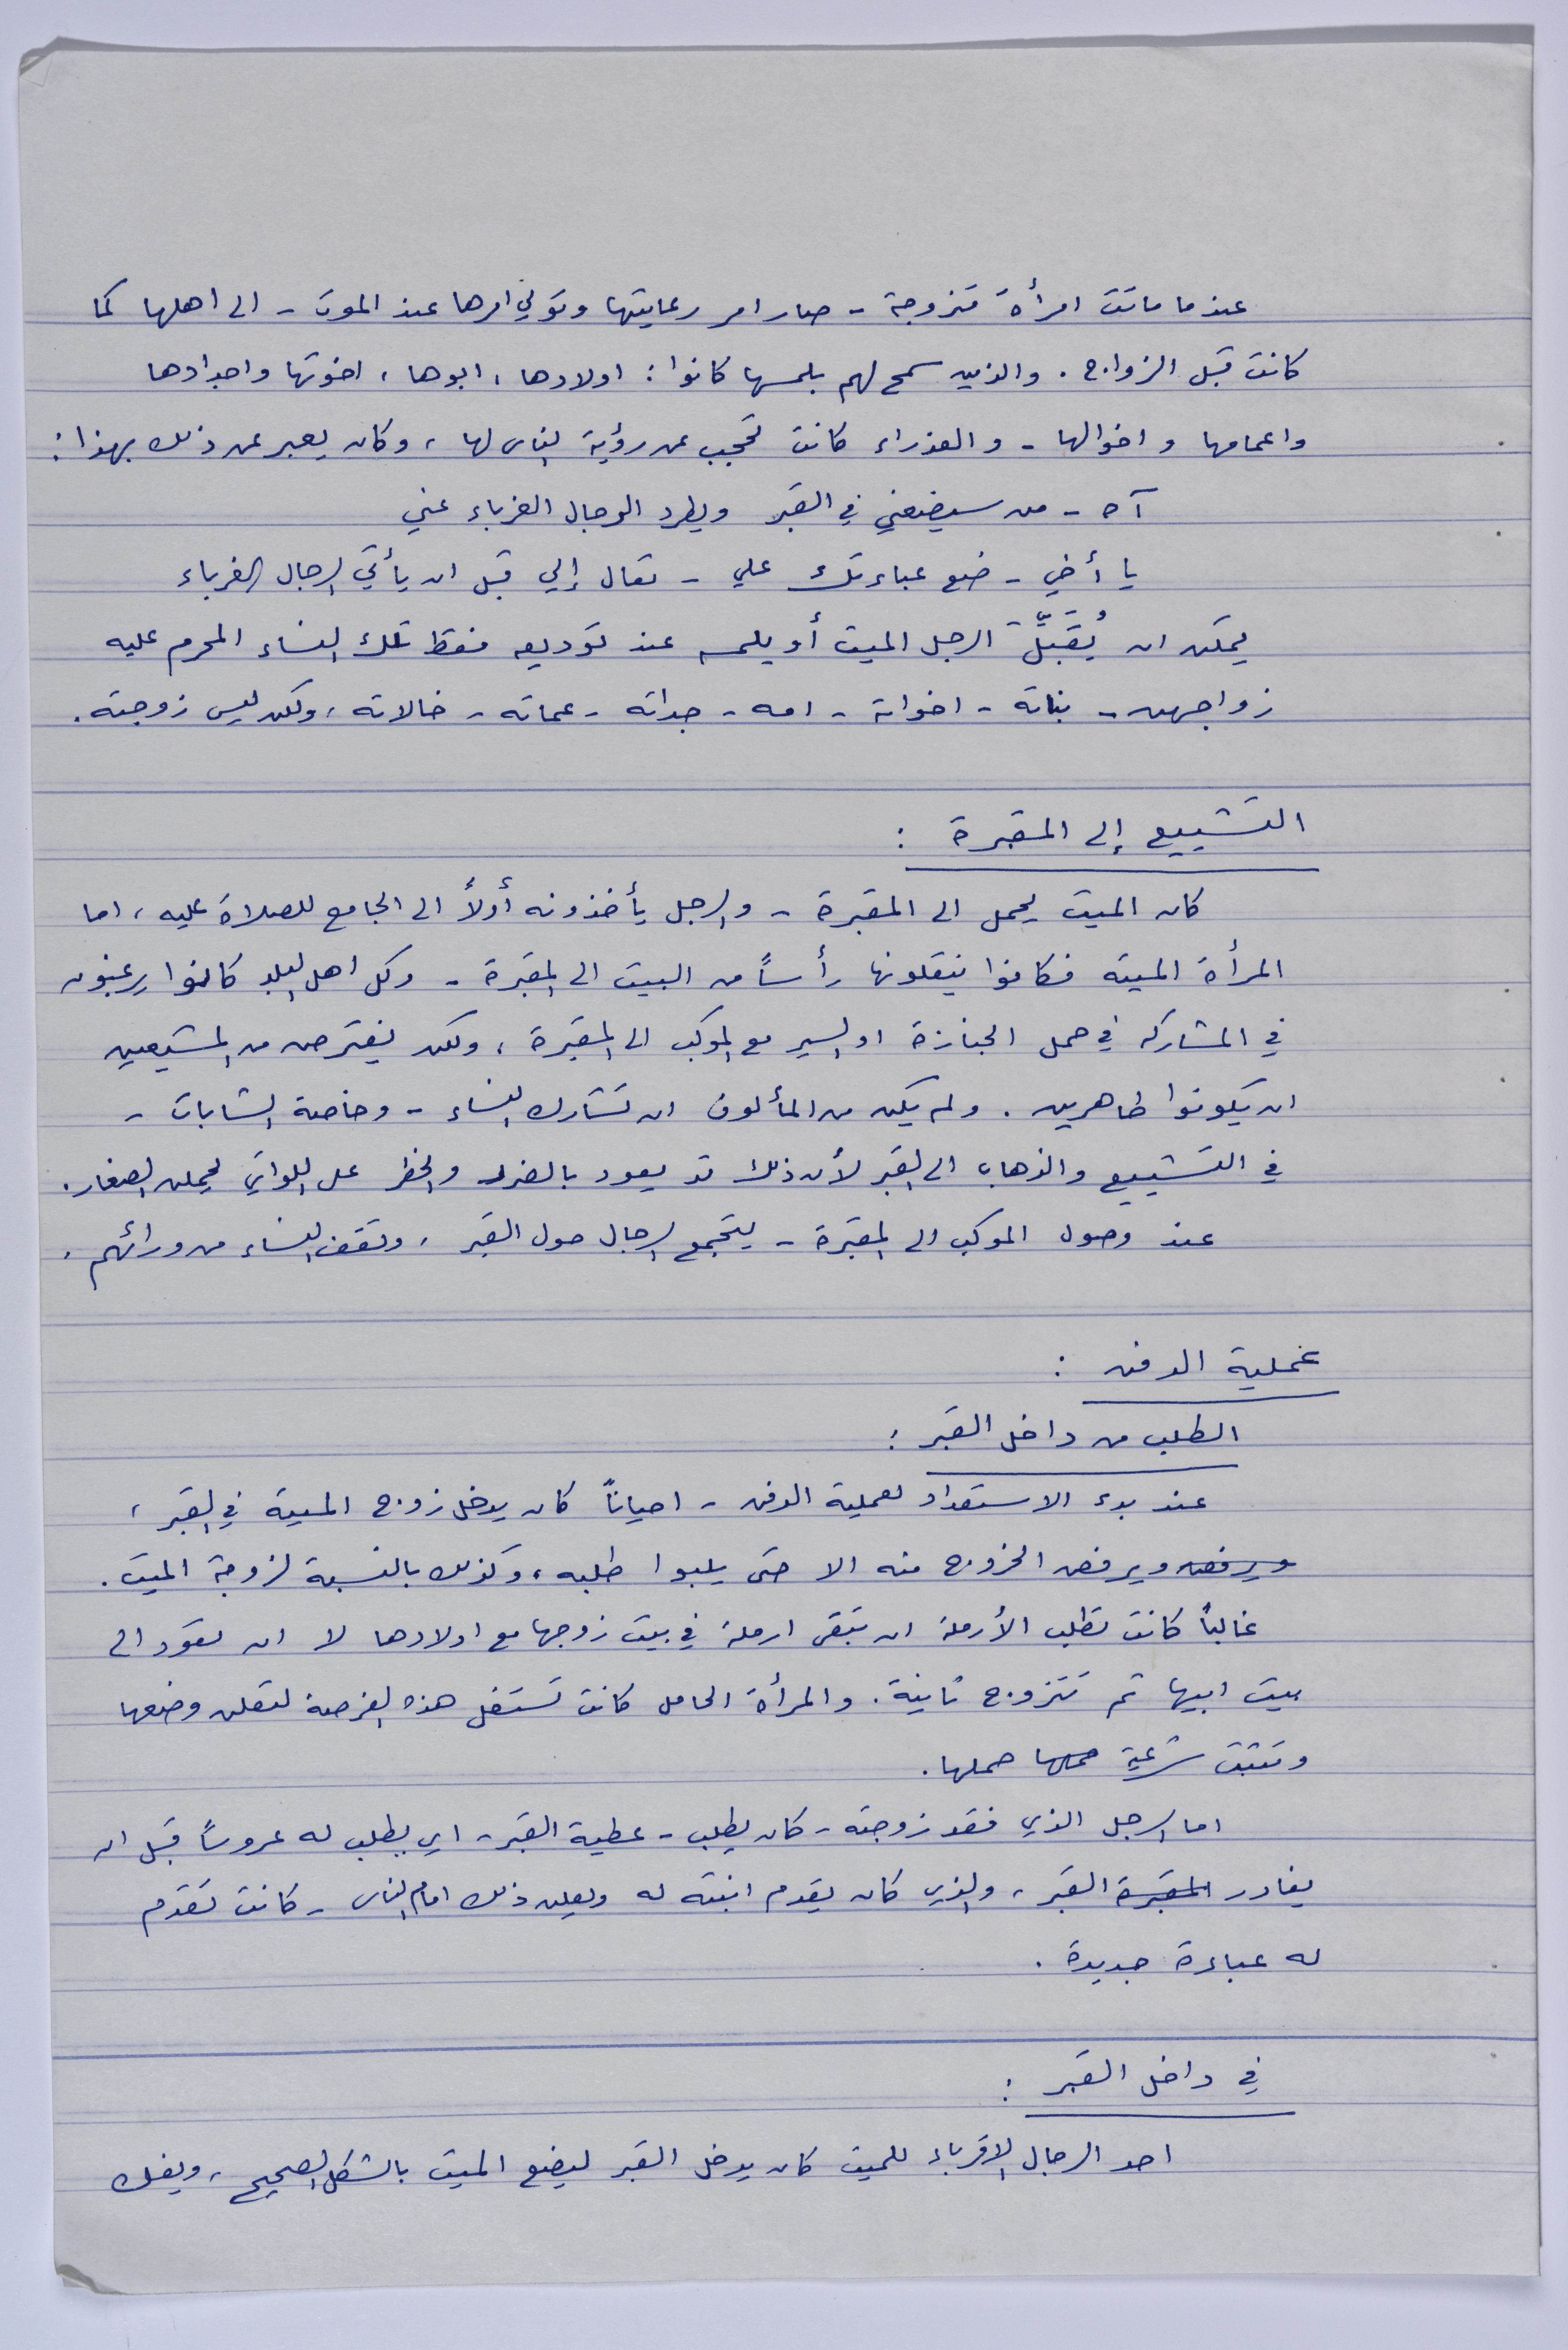 عندما ماتت امرأة متزوجة - صار امر رعايتها وتولي امرها عند الموت - الى اهلها كما
كانت قبل الزواج . والذين سمح لهم بلمسها كانوا : اولادها ، ابوها ، اخوتها واجدادها
واعمامها واخوالها - والعذراء كانت تحجب عن رؤية الناس لها ، وكان يعبر عن ذلك بهذا :
آه - من سيضعني في القبر ويطرد الرجال الغرباء عني
يا أخي - ضع عباءتك علي - تعال إلي قبل ان يأتي الرجال الغرباء
يمكن ان يُقَبِّلَ الرجل الميت أو يلمسه عند توديعه فقط تلك النساء المحرم عليه
زواجهن - بناته - اخواته - امه - جداته - عماته - خالاته ، ولكن ليس زوجته .
التشييع إلى المقبرة :
كان الميت يحمل الى المقبرة - والرجل يأخذونه أولاً الى الجامع للصلاة عليه ، اما
المرأة الميته فكانوا ينقلونها رأساً من البيت الى المقبرة - وكل اهل البلد كانوا يرغبون
في المشاركه في حمل الجنازة او السير مع الموكب الى المقبرة ، ولكن يفترض من المشيعين
ان يكونوا طاهرين . ولم يكن من المألوف ان تشارك النساء - وخاصة الشابات -
في التشييع والذهاب الى القبر لأن ذلك قد يعود بالضرر والخطر على اللواتي يحملن الصغار .
عند وصول الموكب الى المقبرة - يتجمع الرجال حول القبر ، وتقف النساء من ورائهم .
عملية الدفن :
الطلب من داخل القبر :
عند بدء الاستعداد لعملية الدفن - احياناً كان يدخل زوج الميتة في القبر ،
ويرفض ويرفض الخروج منه الا حتى يلبوا طلبه ، وكذلك بالنسبة لزوجة الميت .
غالباً كانت تطلب الأرملة ان تبقى ارملة في بيت زوجها مع اولادها لا ان تعود الى
بيت ابيها ثم تتزوج ثانية . والمرأة الحامل كانت تستغل هذه الفرصة لتعلن وضعها
وتثبت شرعية حملها حملها .
اما الرجل الذي فقد زوجته - كان يطلب - عطية القبر - اي يطلب له عروساً قبل ان
يغادر المقبرة القبر ، والذي كان يقدم ابنته له ويعلن ذلك امام الناس - كانت تقدم
له عباءة جديدة .
في داخل القبر :
احد الرجال الاقرباء للميت كان يدخل القبر ليضع الميت بالشكل الصحيح ، ويفك